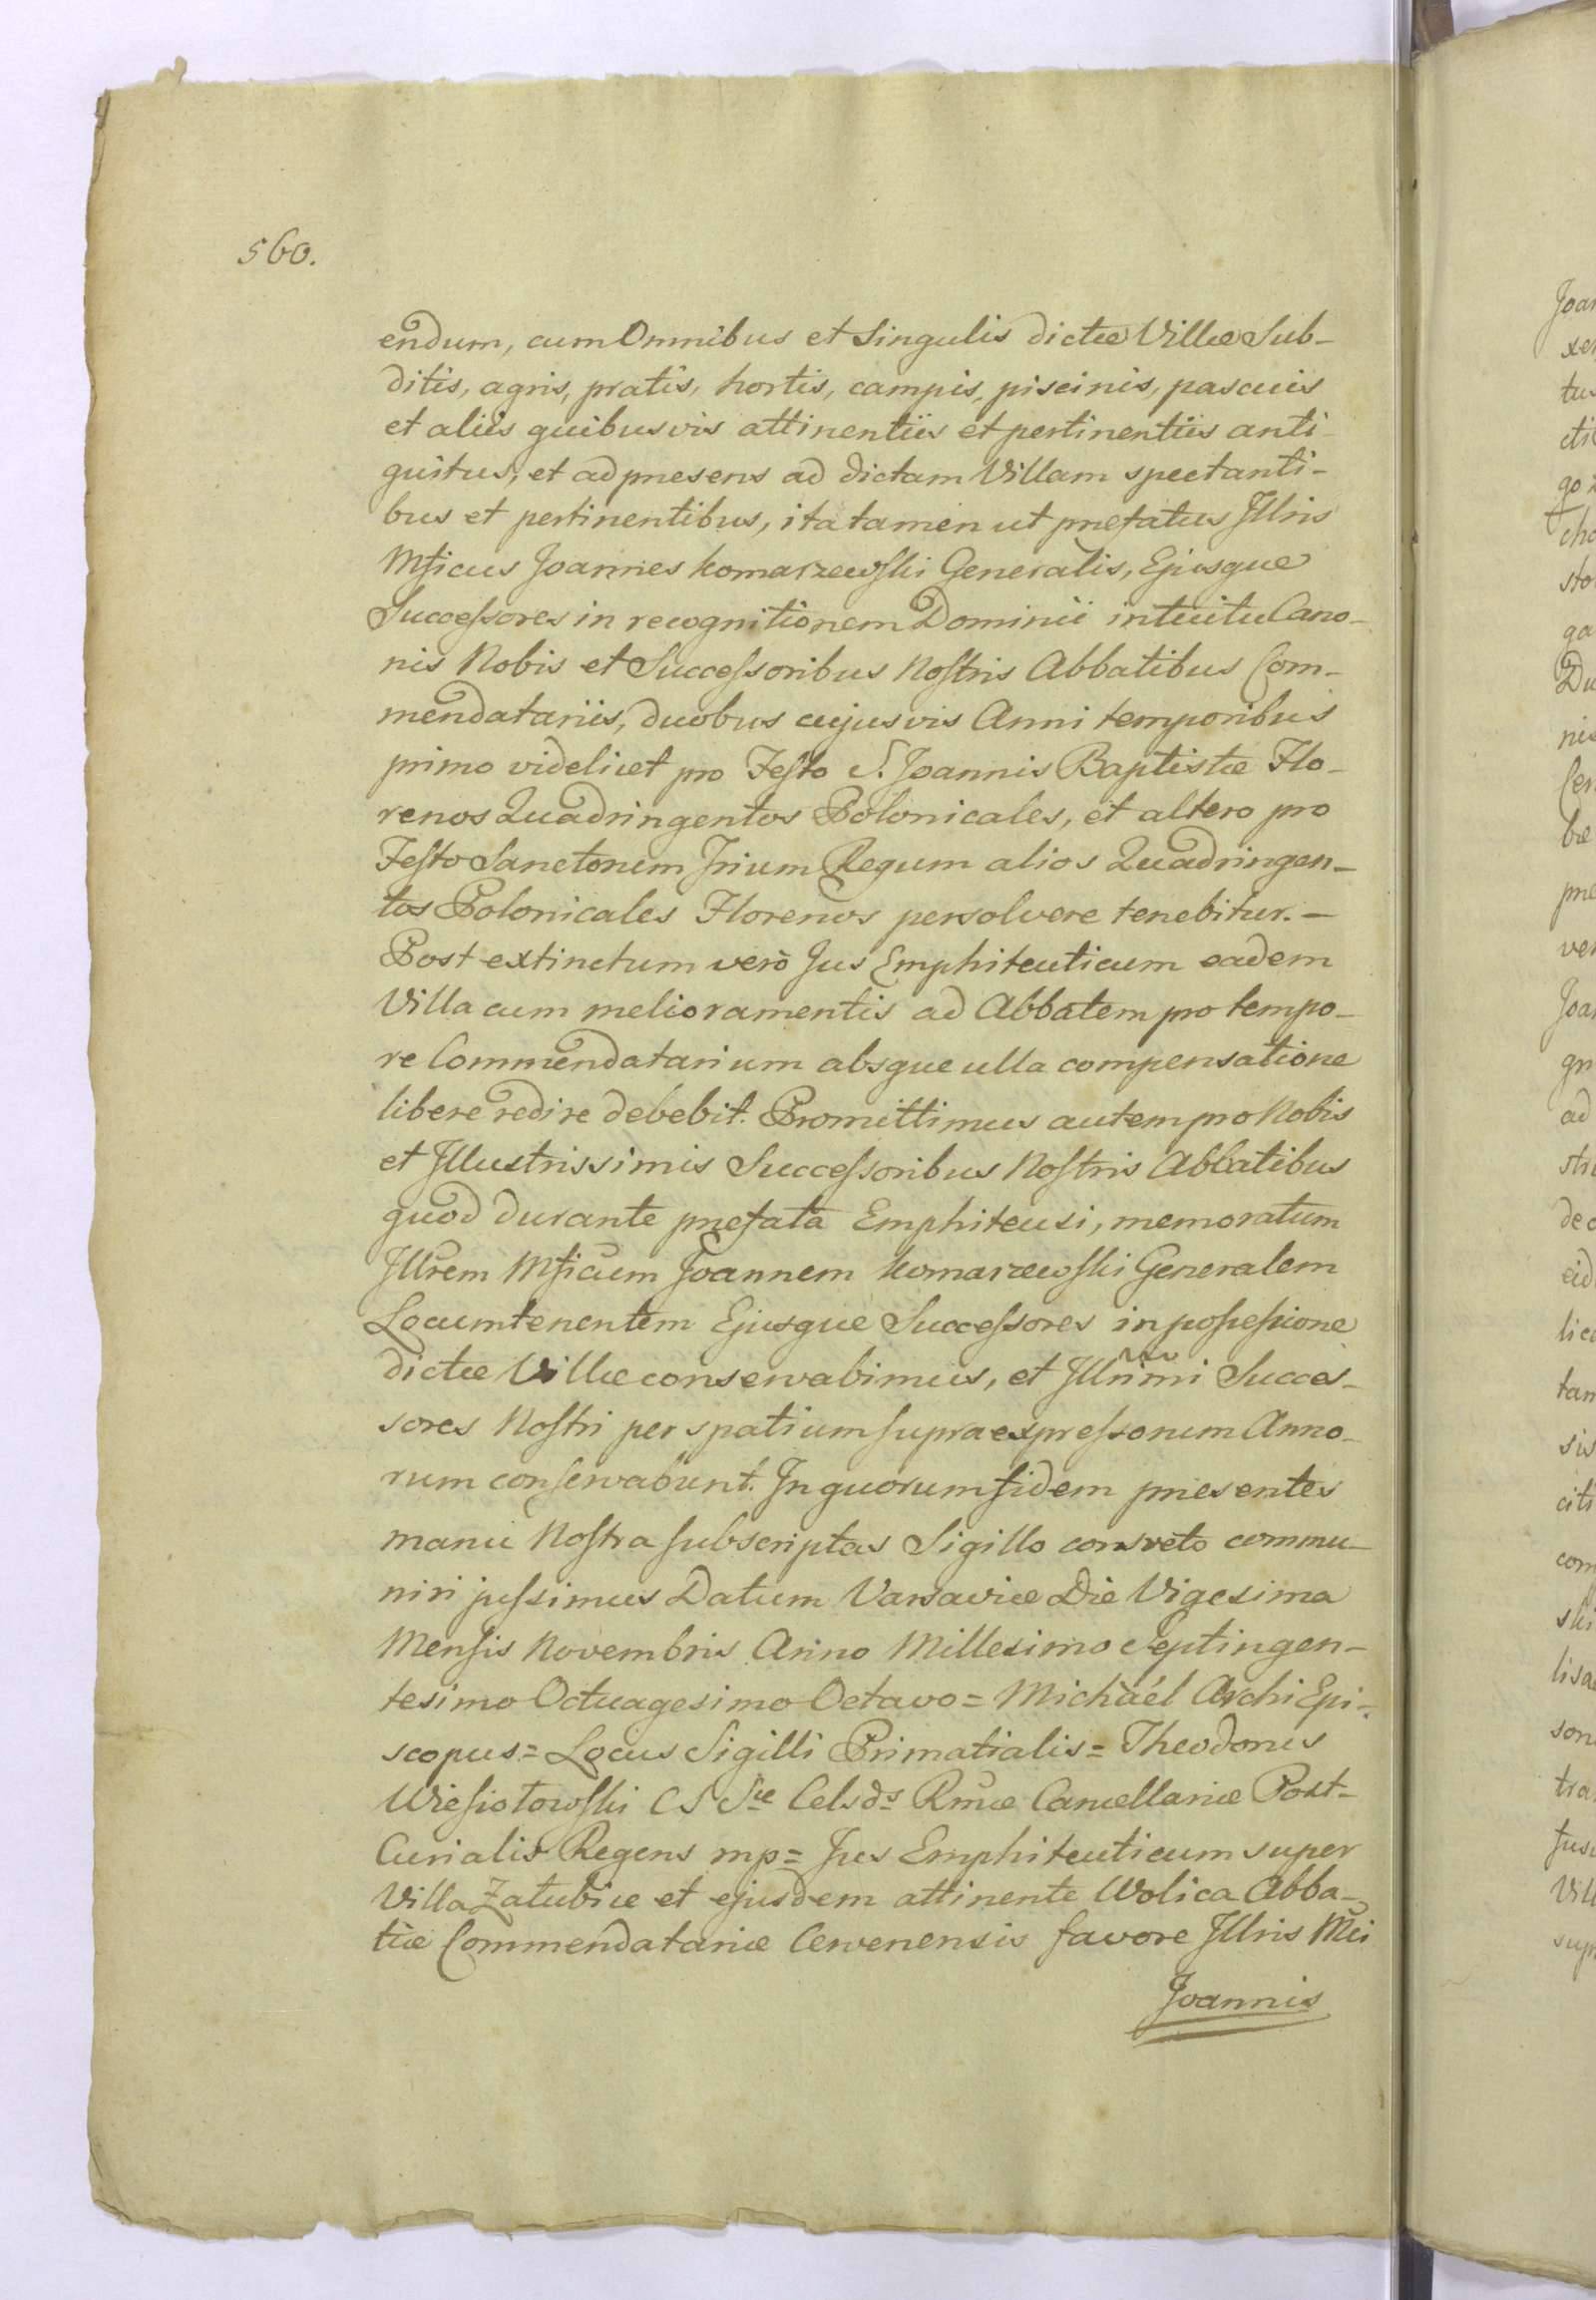 560.
endum, cum Omnibus et Singulis dictæ Villæ Sub-
ditis, agris, pratis, hortis, campis, piscinis, pascuis
et aliis quibusvis attinentiis et pertinentiis anti-
quitus, et ad præsens ad dictam Villam spectanti-
bus et pertinentibus, ita tamen ut præfatus Illris
Mficus Joannes Komarzewski Generalis, Ejusque
Successores in recognitionem Dominii intuitu Cano-
nis Nobis et Successoribus Nostris Abbatibus Com-
mendatariis, duobus cujusvis Anni temporibus
primo videlicet pro Festo S. Joannis Baptistæ Flo-
renos Quadringentos Polonicales, et altero pro
Festo Sanctorum Trium Regum alios Quadringen-
tos Polonicales Florenos persolvere tenebitur. -
Post extinctum verò Jus Emphiteuticum eadem
Villa cum melioramentis ad Abbatem pro tempo-
re Commendatarium absque ulla compensatione
libere redire debebit. Promittimus autem pro Nobis
et Illustrissimis Successoribus Nostris Abbatibus
quod durante præfata Emphiteusi, memoratum
Illrem Mficum Joannem Komarzewski Generalem
Locumtenentem Ejusque Successores in possessione
dictæ Villæ conservabimus, et Illrimi Succes-
sores Nostri per spatium supra expressorum Anno-
rum conservabunt. In quorum fidem præsentes
manu Nostra subscriptas Sigillo consveto commu-
niri jussimus Datum Varsaviæ Die Vigesima
Mensis Novembris Anno Millesimo Septingen-
tesimo Octuagesimo Octavo = Michàél Archi Epi-
scopus = Locus Sigilli Primatialis = Theodorus
Wiesiotowski CS Sæ Celsds Rmæ Cancellariæ Post-
Curialis Regens mp = Jus Emphiteuticum super
Villa Zatubice et ejusdem attinente Wolica Abba-
tiæ Commendatariæ Cervenensis favore Illris Mci
Joannis